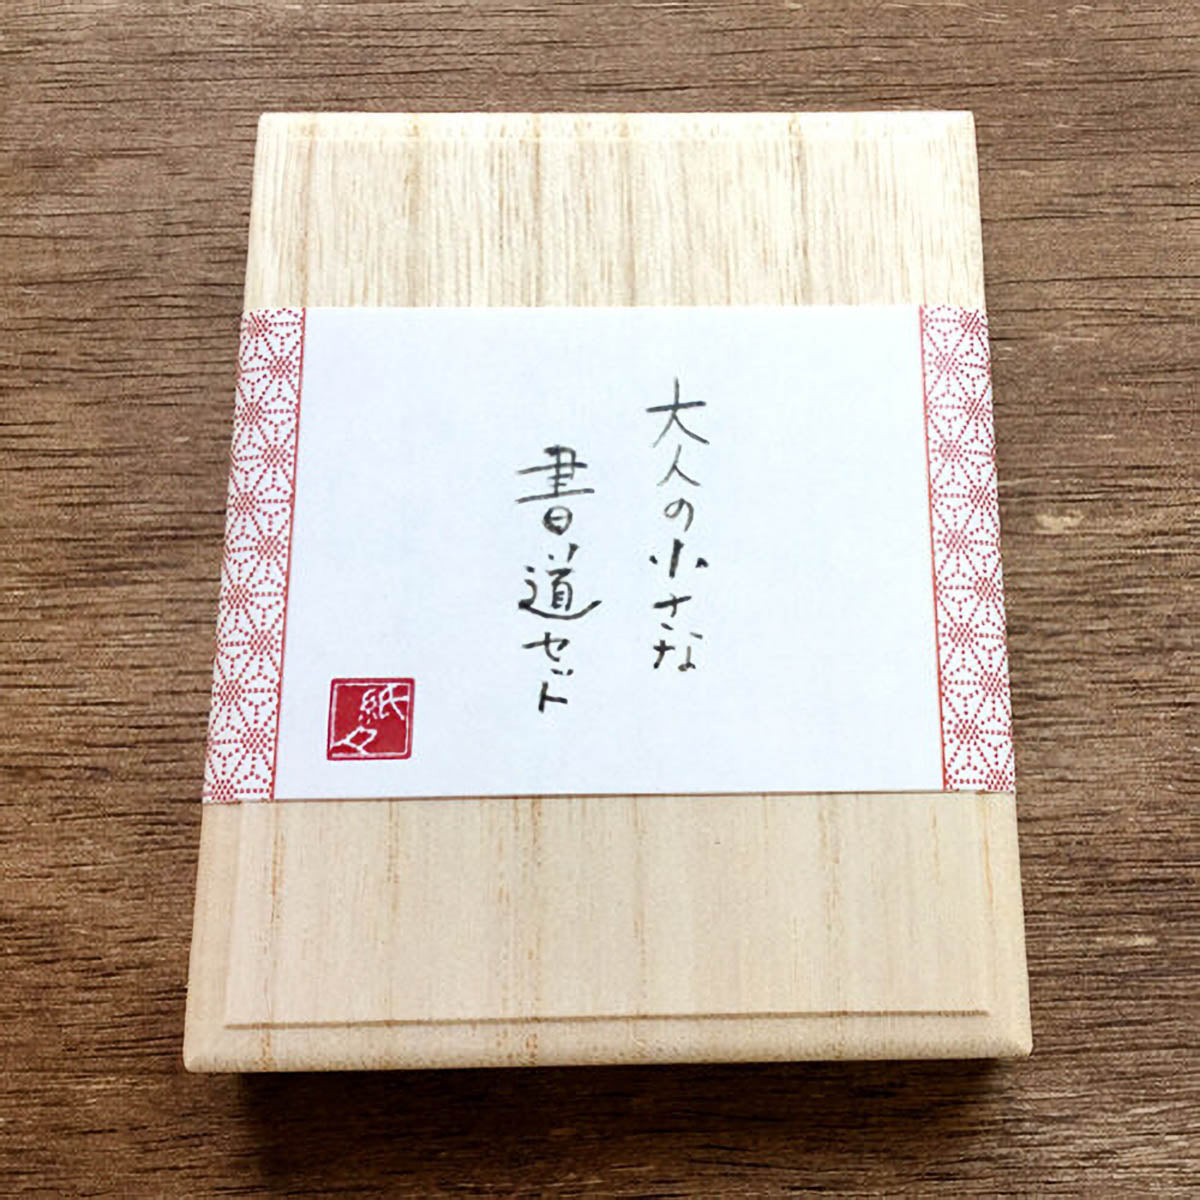 大人の小さな
書道セット
紙々